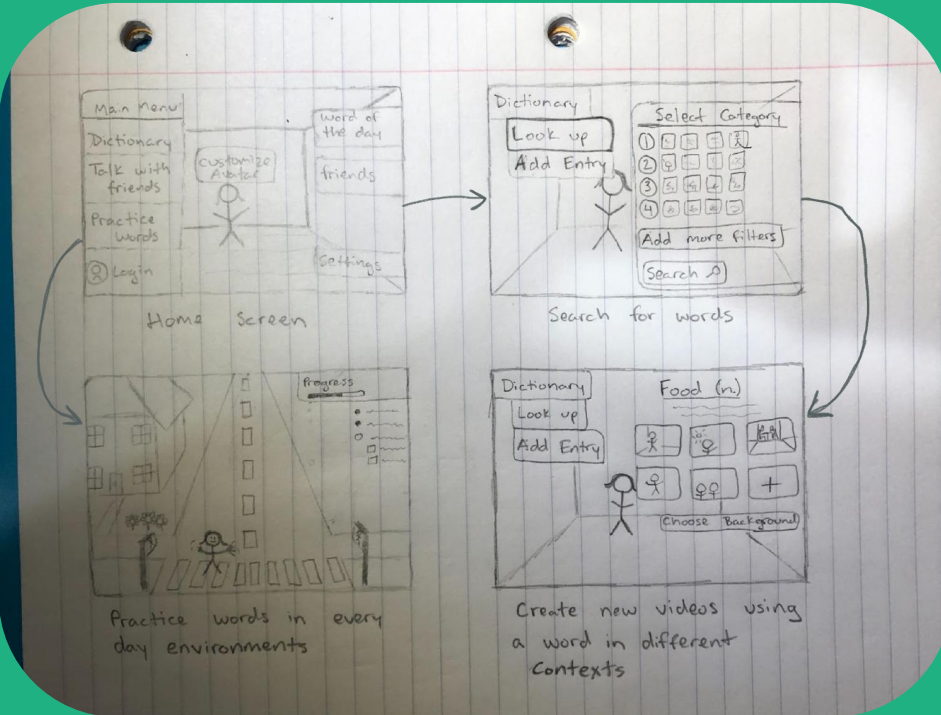 Main Menu
Dictionary
Talk with
friends
Practice
Words
Login
Customize
Avatar
Word of
the day
friends
Settings
Home Screen
Dictionary
Look up
Add Entry
Select Category
1
2
3
4
Add more filters
Search
Search for words
Progress
Practice words in every
day environments
Dictionary
Look up
Add Entry
Food (n.)
+
Choose Background
Create new videos using
a word in different
Contexts